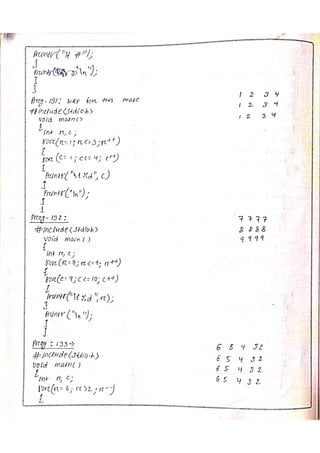 printf("\t #");
}
printf("\n");
}
}
Prog-131: WAP for this
#include<stdio.h>
void main()
{
int r, c;
for(r=1; r<=3; r++)
{
for(c=1; c<=4; c++)
{
printf("\t %d", c)
}
printf("\n");
}
}
1 2 3 4
1 2 3 4
1 2 3 4
Prog-132:
#include<stdio.h>
void main()
{
int r, c;
for(r=7; r<=9; r++)
{
for(c=7; c<=10; c++)
{
printf("\t %d", r);
}
printf("\n");
}
}
7 7 7 7
8 8 8 8
9 9 9 9
Prog: 133→
#include<stdio.h>
void main()
{
int r, c;
for(r=6; r>2; r--)
{
6 5 4 3 2
6 5 4 3 2
6 5 4 3 2
6 5 4 3 2